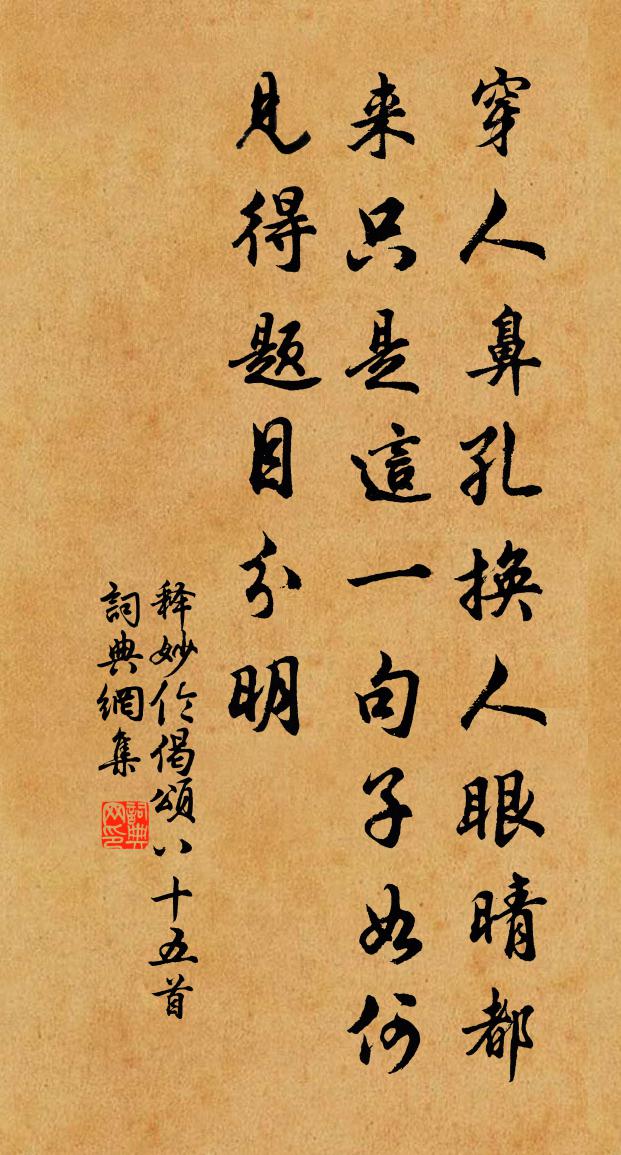 穿人鼻孔換人眼睛都
来只是這一句子如何
見得题目分明
释妙伦偈頌八十五首
詞典網集
詞典网印